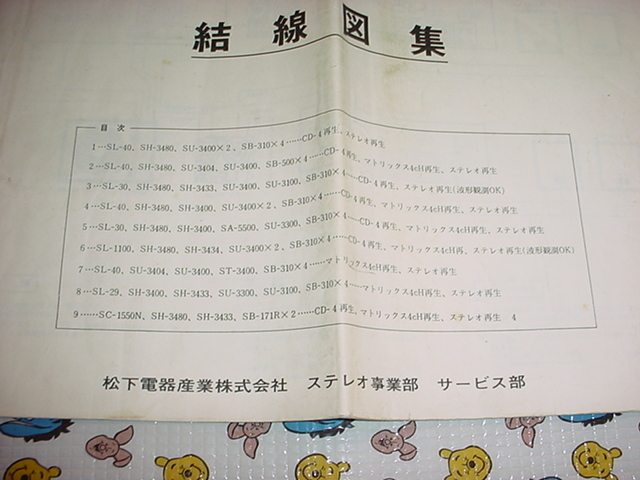 結線図集
目次
1…SL-40、SH-3480、SU-3400×2、SB-310×4……CD-4再生、ステレオ再生
2…SL-40、SH-3480、SU-3404、SU-3400、SB-500×4……CD-4再生、マトリックス4cH再生、ステレオ再生
3…SL-30、SH-3480、SH-3433、SU-3400、SU-3100、SB-310×4……CD-4再生、マトリックス4cH再生、ステレオ再生(波形観測OK)
4…SL-40、SH-3480、SH-3400、SU-3400×2、SB-310×4……CD-4再生、マトリックス4cH再生、ステレオ再生
5…SL-30、SH-3480、SH-3400、SA-5500、SU-3300、SB-310×4……CD-4再生、マトリックス4cH再生、ステレオ再生
6…SL-1100、SH-3480、SH-3434、SU-3400×2、SB-310×4……CD-4再生、マトリックス4cH再、ステレオ再生(波形観測OK)
7…SL-40、SU-3404、SU-3400、ST-3400、SB-310×4……マトリックス4cH再生、ステレオ再生
8…SL-29、SH-3400、SH-3433、SU-3300、SU-3100、SB-310×4……マトリックス4cH再生、ステレオ再生
9……SC-1550N、SH-3480、SH-3433、SB-171R×2……CD-4再生、マトリックス4cH再生、ステレオ再生 4
松下電器産業株式会社 ステレオ事業部 サービス部